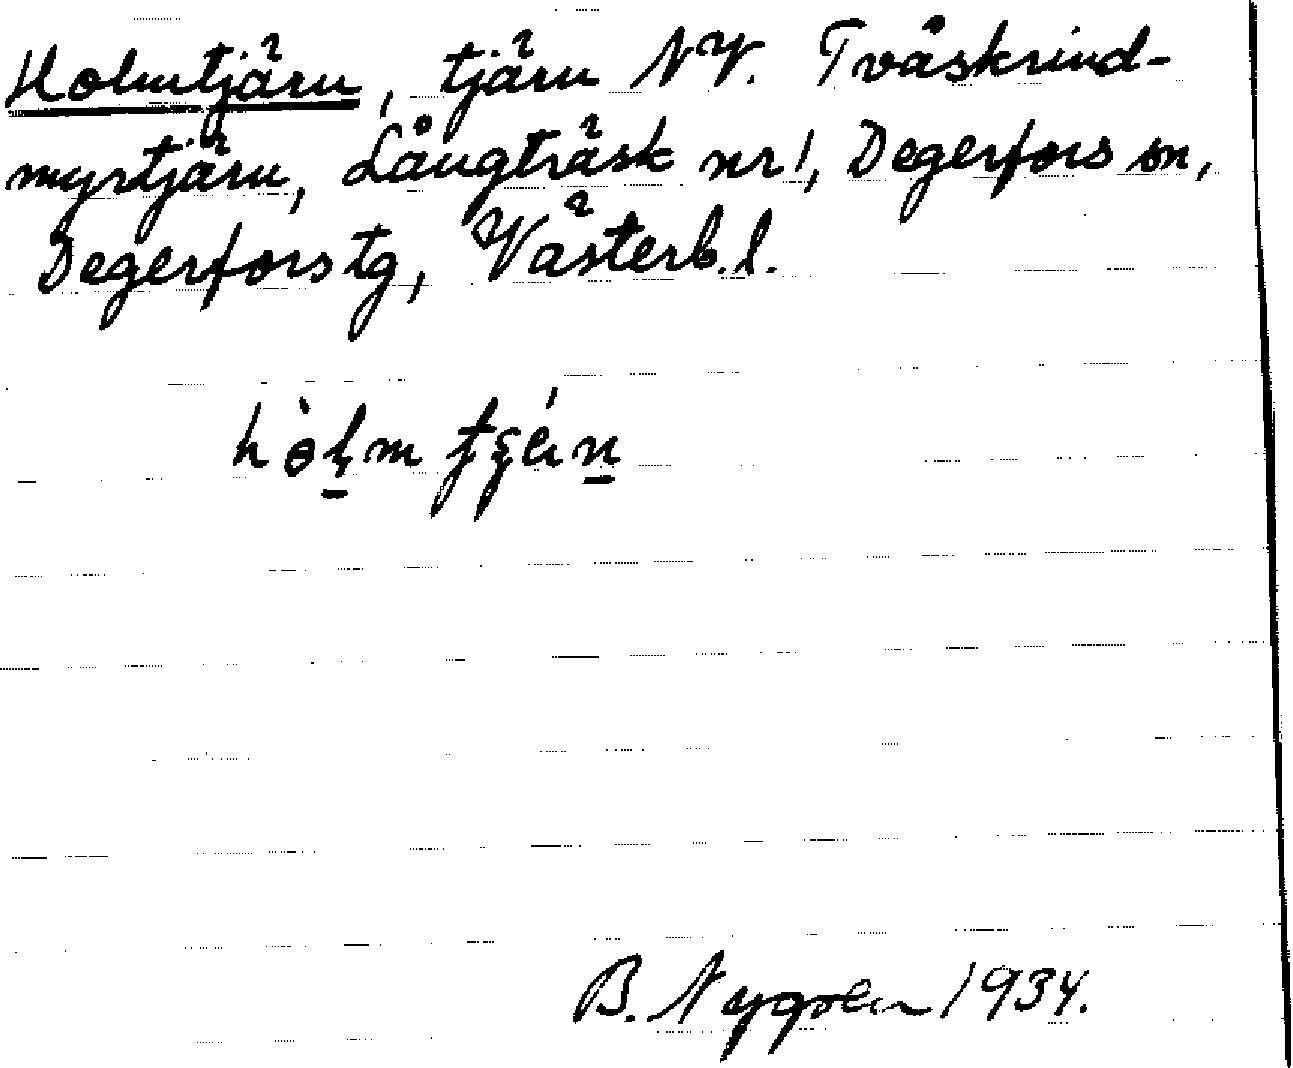 Holmtjärn, tjärn NV. Tvåskrind-
myrtjärn, Långträsk nr 1, Degerfors sn,
Degerfors tg, Västerb. l.
B. Nygren 1934.